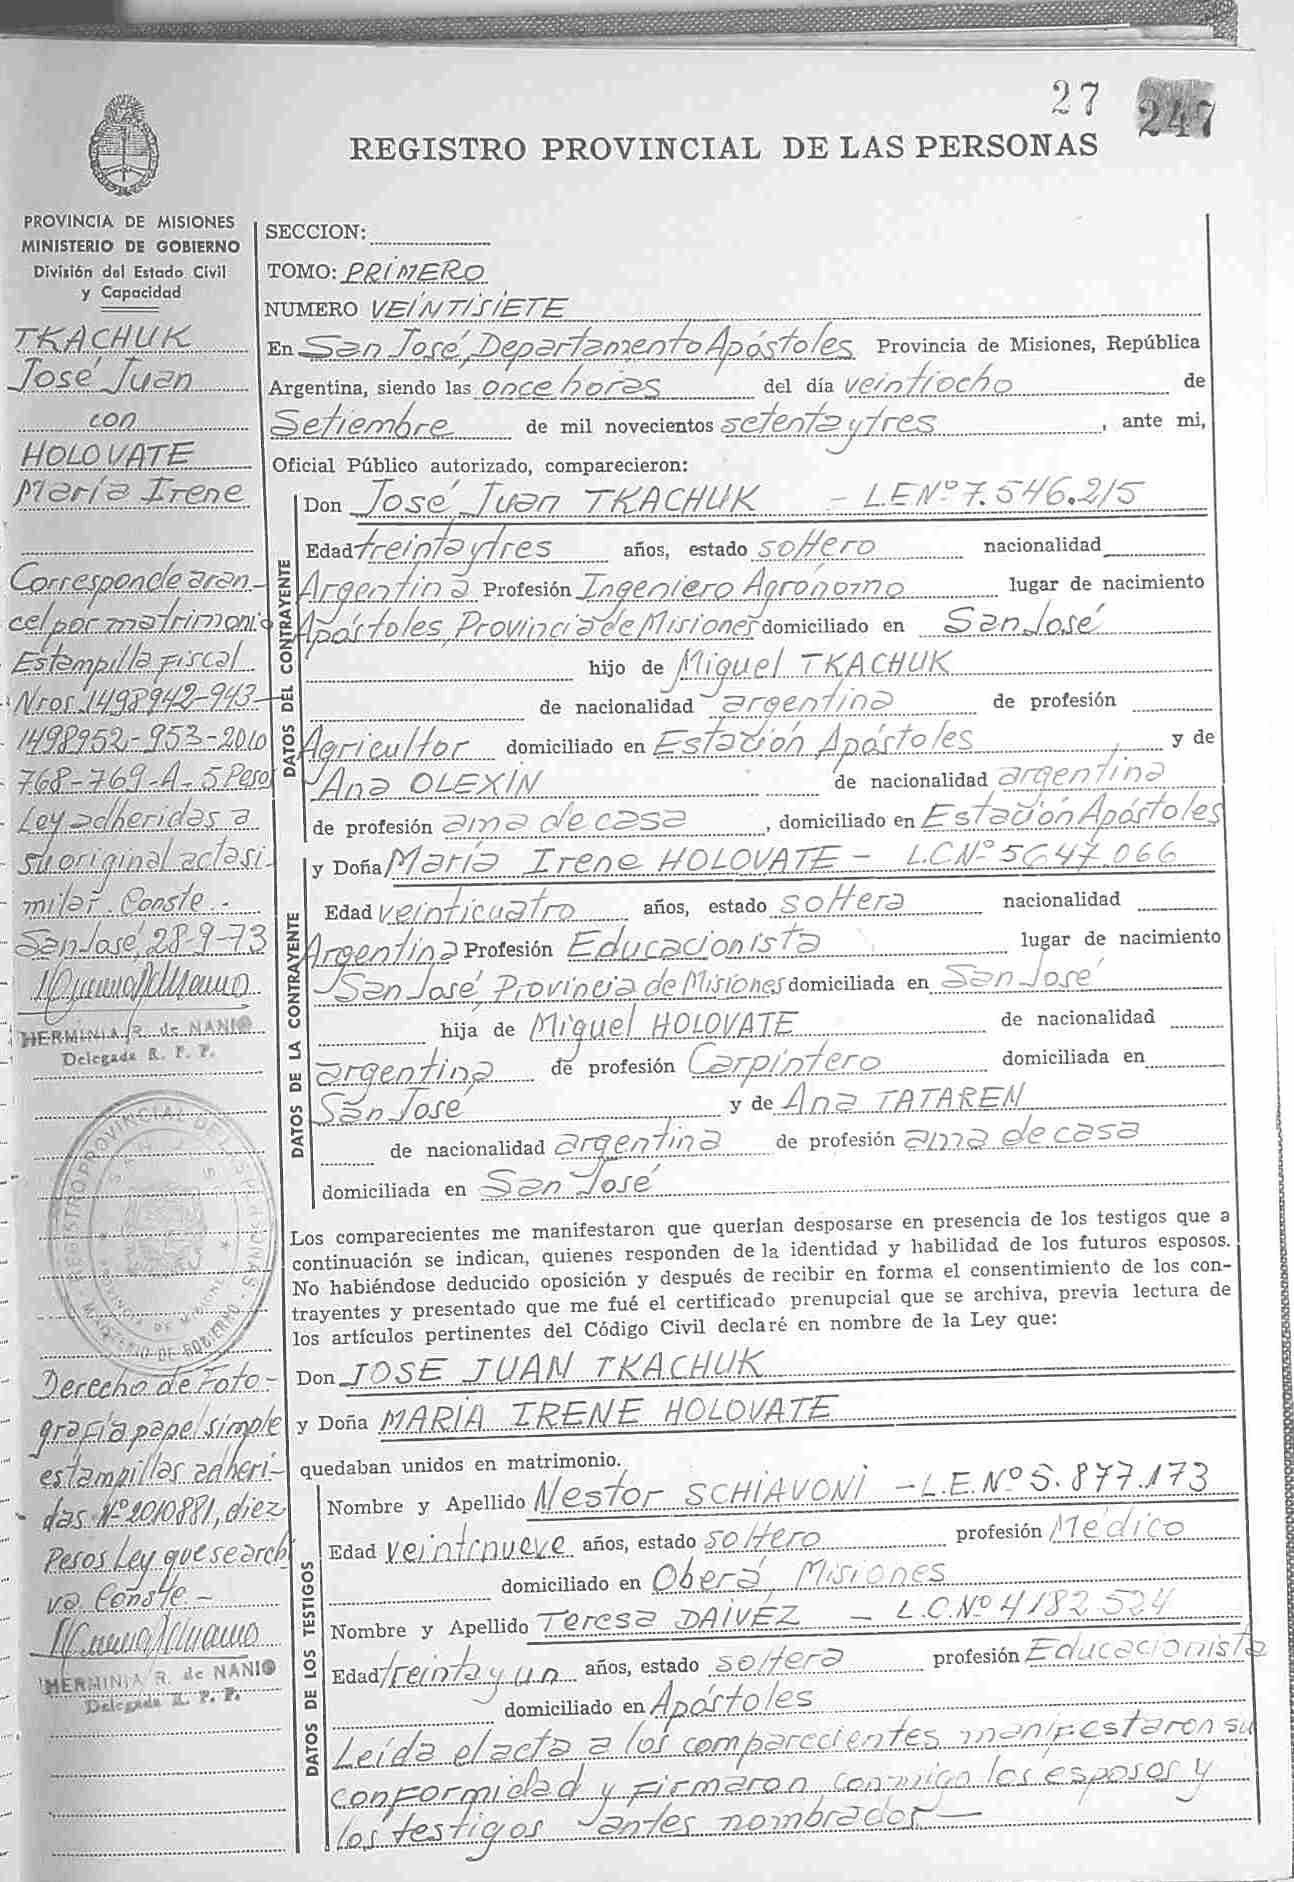 27 247
REGISTRO PROVINCIAL DE LAS PERSONAS
PROVINCIA DE MISIONES
MINISTERIO DE GOBIERNO
División del Estado Civil
y Capacidad
TKACHUK
José Juan
con
HOLOVATE
María Irene
Corresponde aran-
cel por matrimonio
Estampilla Fiscal
Nros 1498942-943-
1498952-953-2010
768-769-A-5 Pesos
Ley adheridas a
su original acta si-
milar. Conste.-
San José, 28-9-73
HERMINIA R. de NANIO
Delegada R. P. P.
REGISTRO PROVINCIAL DE LAS PERSONAS
SAN JOSE
PROVINCIA DE MISIONES
MINISTERIO DE GOBIERNO
Derecho de Foto-
grafía papel simple
estampillas adheri-
das Nº 2010881, diez
Pesos Ley que se archi
va. Conste.-
HERMINIA R. de NANIO
Delegada R. P. P.
SECCION:
TOMO: PRIMERO
NUMERO VEINTISIETE
En San José, Departamento Apóstoles Provincia de Misiones, República
Argentina, siendo las once horas del día veintiocho de
Setiembre de mil novecientos setenta y tres, ante mi,
Oficial Público autorizado, comparecieron:
DATOS DEL CONTRAYENTE
Don José Juan TKACHUK - LE Nº 7.546.215
Edad treinta y tres años, estado soltero nacionalidad
Argentina Profesión Ingeniero Agrónomo lugar de nacimiento
Apóstoles, Provincia de Misiones domiciliado en San José
hijo de Miguel TKACHUK
de nacionalidad argentina de profesión
Agricultor domiciliado en Estación Apóstoles y de
Ana OLEXIN de nacionalidad argentina
de profesión ama de casa, domiciliado en Estación Apóstoles
DATOS DE LA CONTRAYENTE
y Doña María Irene HOLOVATE - L.C.Nº 5647.066
Edad veinticuatro años, estado soltera nacionalidad
Argentina Profesión Educacionista lugar de nacimiento
San José, Provincia de Misiones domiciliada en San José
hija de Miguel HOLOVATE de nacionalidad
argentina de profesión Carpintero domiciliada en
San José y de Ana TATAREN
de nacionalidad argentina de profesión ama de casa
domiciliada en San José
Los comparecientes me manifestaron que querían desposarse en presencia de los testigos que a
continuación se indican, quienes responden de la identidad y habilidad de los futuros esposos.
No habiéndose deducido oposición y después de recibir en forma el consentimiento de los con-
trayentes y presentado que me fué el certificado prenupcial que se archiva, previa lectura de
los artículos pertinentes del Código Civil declaré en nombre de la Ley que:
Don JOSE JUAN TKACHUK
y Doña MARIA IRENE HOLOVATE
quedaban unidos en matrimonio.
DATOS DE LOS TESTIGOS
Nombre y Apellido Nestor SCHIAVONI - L.E.Nº 5.877.173
Edad veintinueve años, estado soltero profesión Médico
domiciliado en Oberá, Misiones
Nombre y Apellido Teresa DAIVEZ - L.C.Nº 4182.524
Edad treinta y un años, estado soltera profesión Educacionista
domiciliado en Apóstoles
Leída el acta a los comparecientes manifestaron su
conformidad y firmaron conmigo los esposos y
los testigos antes nombrados—